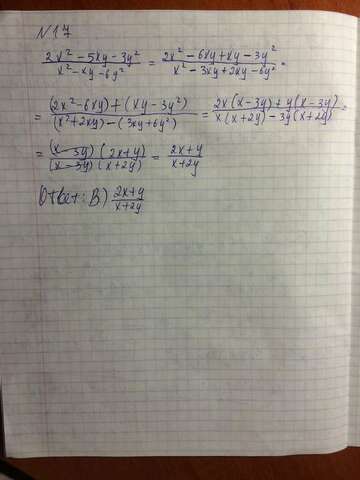 N 17
(2x² - 5xy - 3y²)/(x² - xy - 6y²) = (2x² - 6xy + xy - 3y²)/(x² - 3xy + 2xy - 6y²) =
= ((2x² - 6xy) + (xy - 3y²))/((x² + 2xy) - (3xy + 6y²)) = (2x(x - 3y) + y(x - 3y))/(x(x + 2y) - 3y(x + 2y)) =
= ((x - 3y)(2x + y))/((x - 3y)(x + 2y)) = (2x + y)/(x + 2y)
Ответ: B) (2x + y)/(x + 2y)